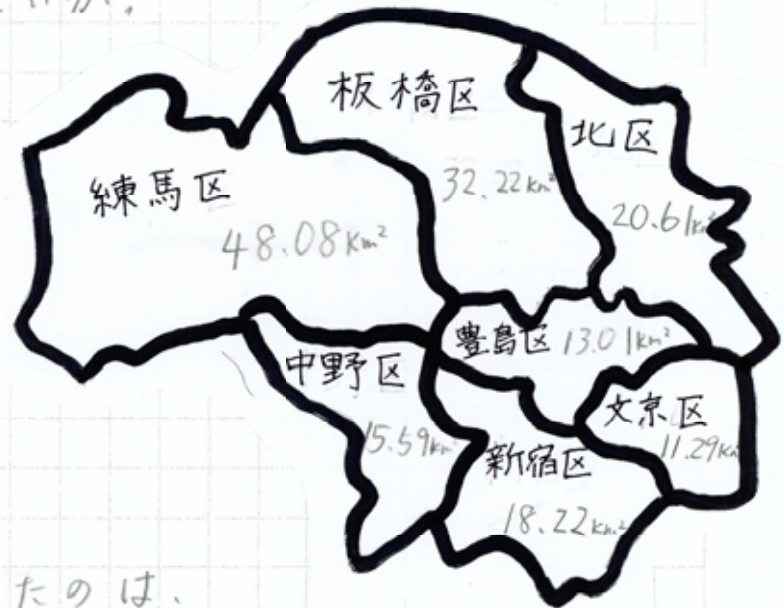 板橋区
32.22km²
北区
20.61km²
練馬区
48.08km²
豊島区 13.01km²
中野区
15.59km²
文京区
11.29km²
新宿区
18.22km²
たのは、